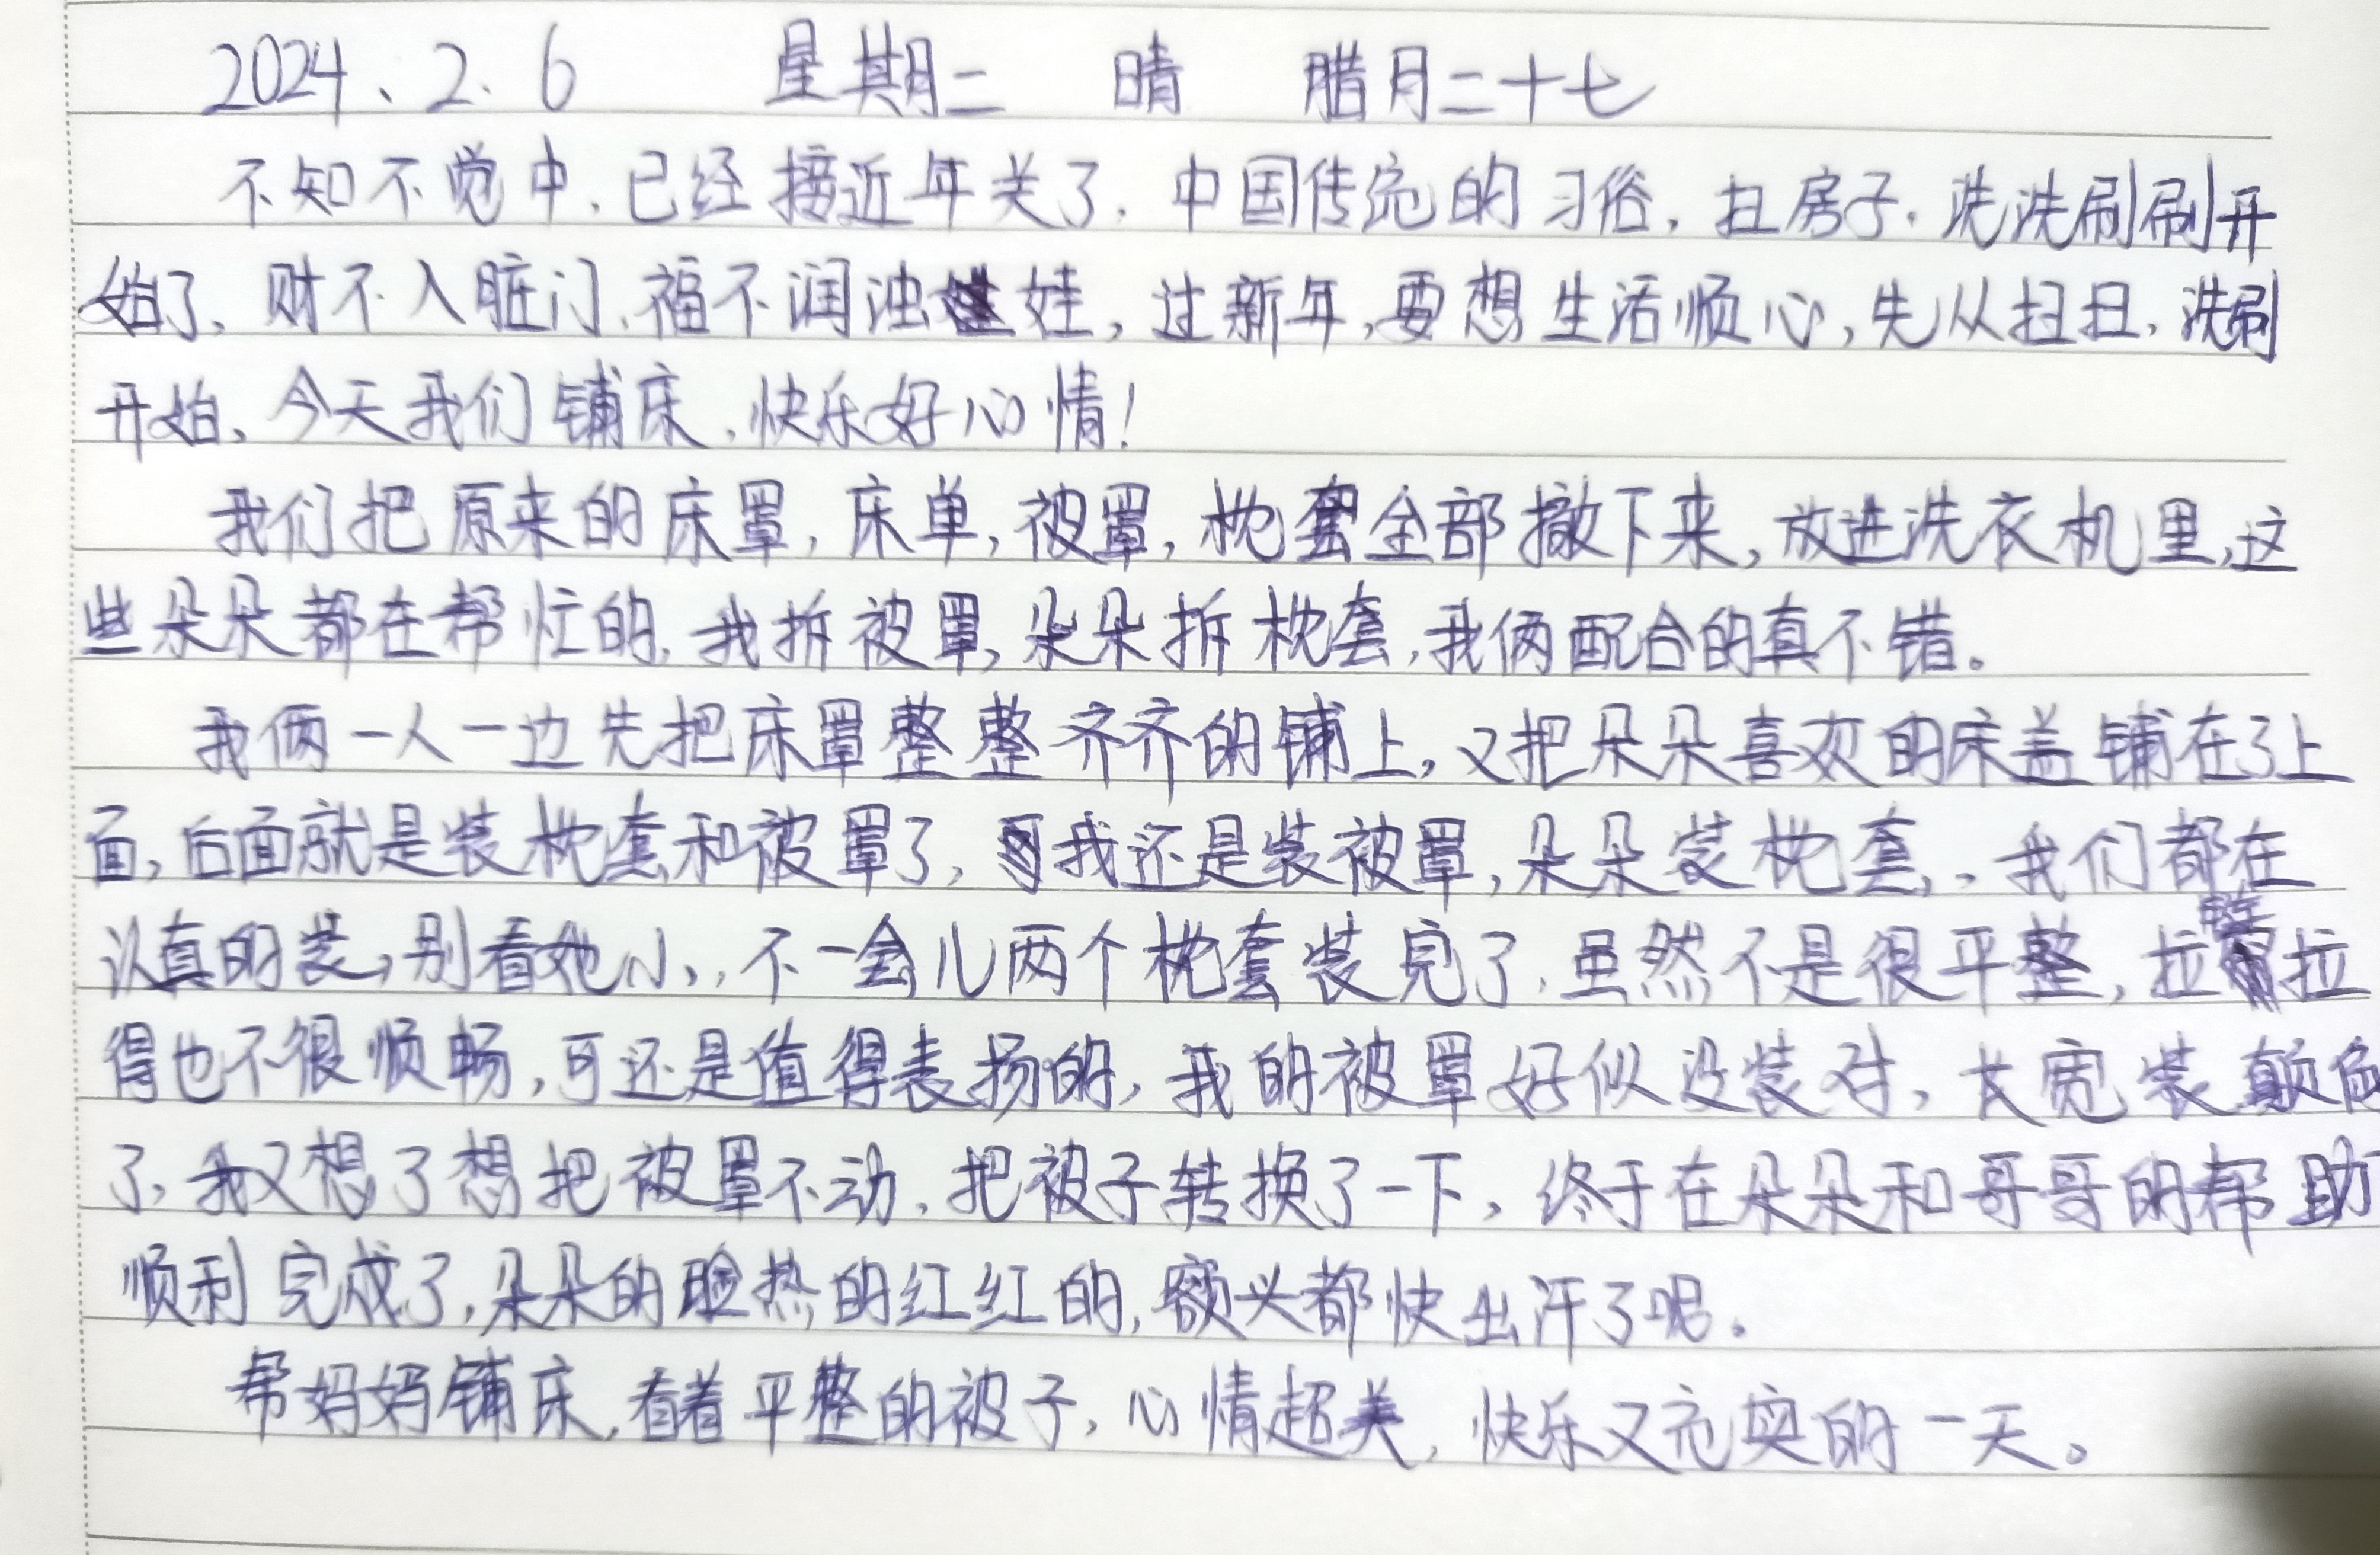 2024、2.6 星期二 晴 腊月二十七
不知不觉中,已经接近年关了,中国传统的习俗,扫房子,洗洗刷刷开
始了,财不入脏门,福不润浊娃,过新年,要想生活顺心,先从扫扫,洗刷
开始,今天我们铺床,快乐好心情!
我们把原来的床罩,床单,被罩,枕套全部撤下来,放进洗衣机里,这
些朵朵都在帮忙的,我拆被罩,朵朵拆枕套,我俩配合的真不错。
我俩一人一边先把床罩整整齐齐的铺上,又把朵朵喜欢的床盖铺在了上
面,后面就是装枕套和被罩了,我还是装被罩,朵朵装枕套,,我们都在
认真的装,别看她小,,不一会儿两个枕套装完了,虽然不是很平整,拉链拉
得也不很顺畅,可还是值得表扬的,我的被罩好似没装对,长宽装颠倒
了,我又想了想把被罩不动,把被子转换了一下,终于在朵朵和哥哥的帮助
顺利完成了,朵朵的脸热的红红的,额头都快出汗了呢。
帮妈妈铺床,看着平整的被子,心情超美,快乐又充实的一天。